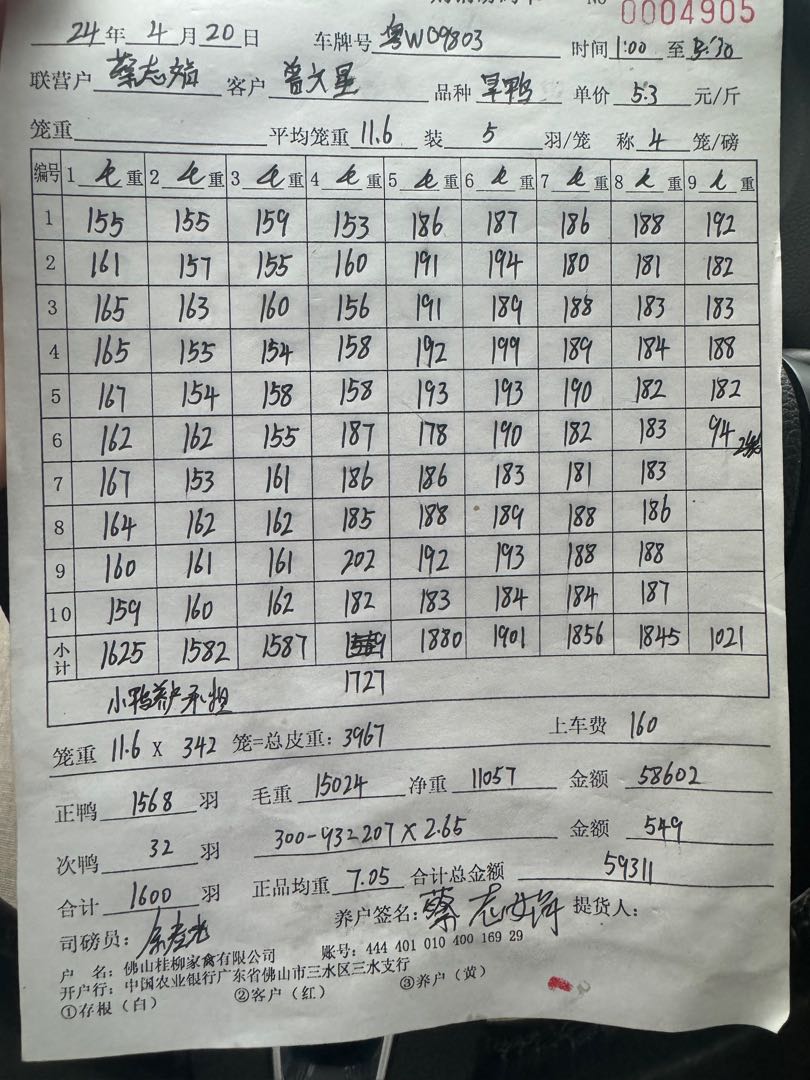 No 0004905
24 年 4 月 20 日 车牌号 粤W09803 时间 1:00 至 3:30
联营户 蔡志 客户 曾大星 品种 旱鸭 单价 5.3 元/斤
笼重 平均笼重 11.6 装 5 羽/笼 称 4 笼/磅
编号 1 毛 重 2 毛 重 3 毛 重 4 毛 重 5 毛 重 6 毛 重 7 毛 重 8 毛 重 9 毛 重
1 155 155 159 153 186 187 186 188 192
2 161 157 155 160 191 194 180 181 182
3 165 163 160 156 191 189 188 183 183
4 165 155 154 158 192 199 189 184 188
5 167 154 158 158 193 193 190 182 182
6 162 162 155 187 178 190 182 183 94
7 167 153 161 186 186 183 181 183
8 164 162 162 185 188 189 188 186
9 160 161 161 202 192 193 188 188
10 159 160 162 182 183 184 184 187
小计 1625 1582 1587 1880 1901 1856 1845 1021
小鸭养户承担 1727
笼重 11.6 X 342 笼=总皮重: 3967 上车费 160
正鸭 1568 羽 毛重 15024 净重 11057 金额 58602
次鸭 32 羽 300-93=207 X 2.65 金额 549
合计 1600 羽 正品均重 7.05 合计总金额 59311
司磅员: 养户签名: 蔡志 提货人:
户 名: 佛山桂柳家禽有限公司 账号: 444 401 010 400 169 29
开户行: 中国农业银行广东省佛山市三水区三水支行
①存根(白) ②客户(红) ③养户(黄)